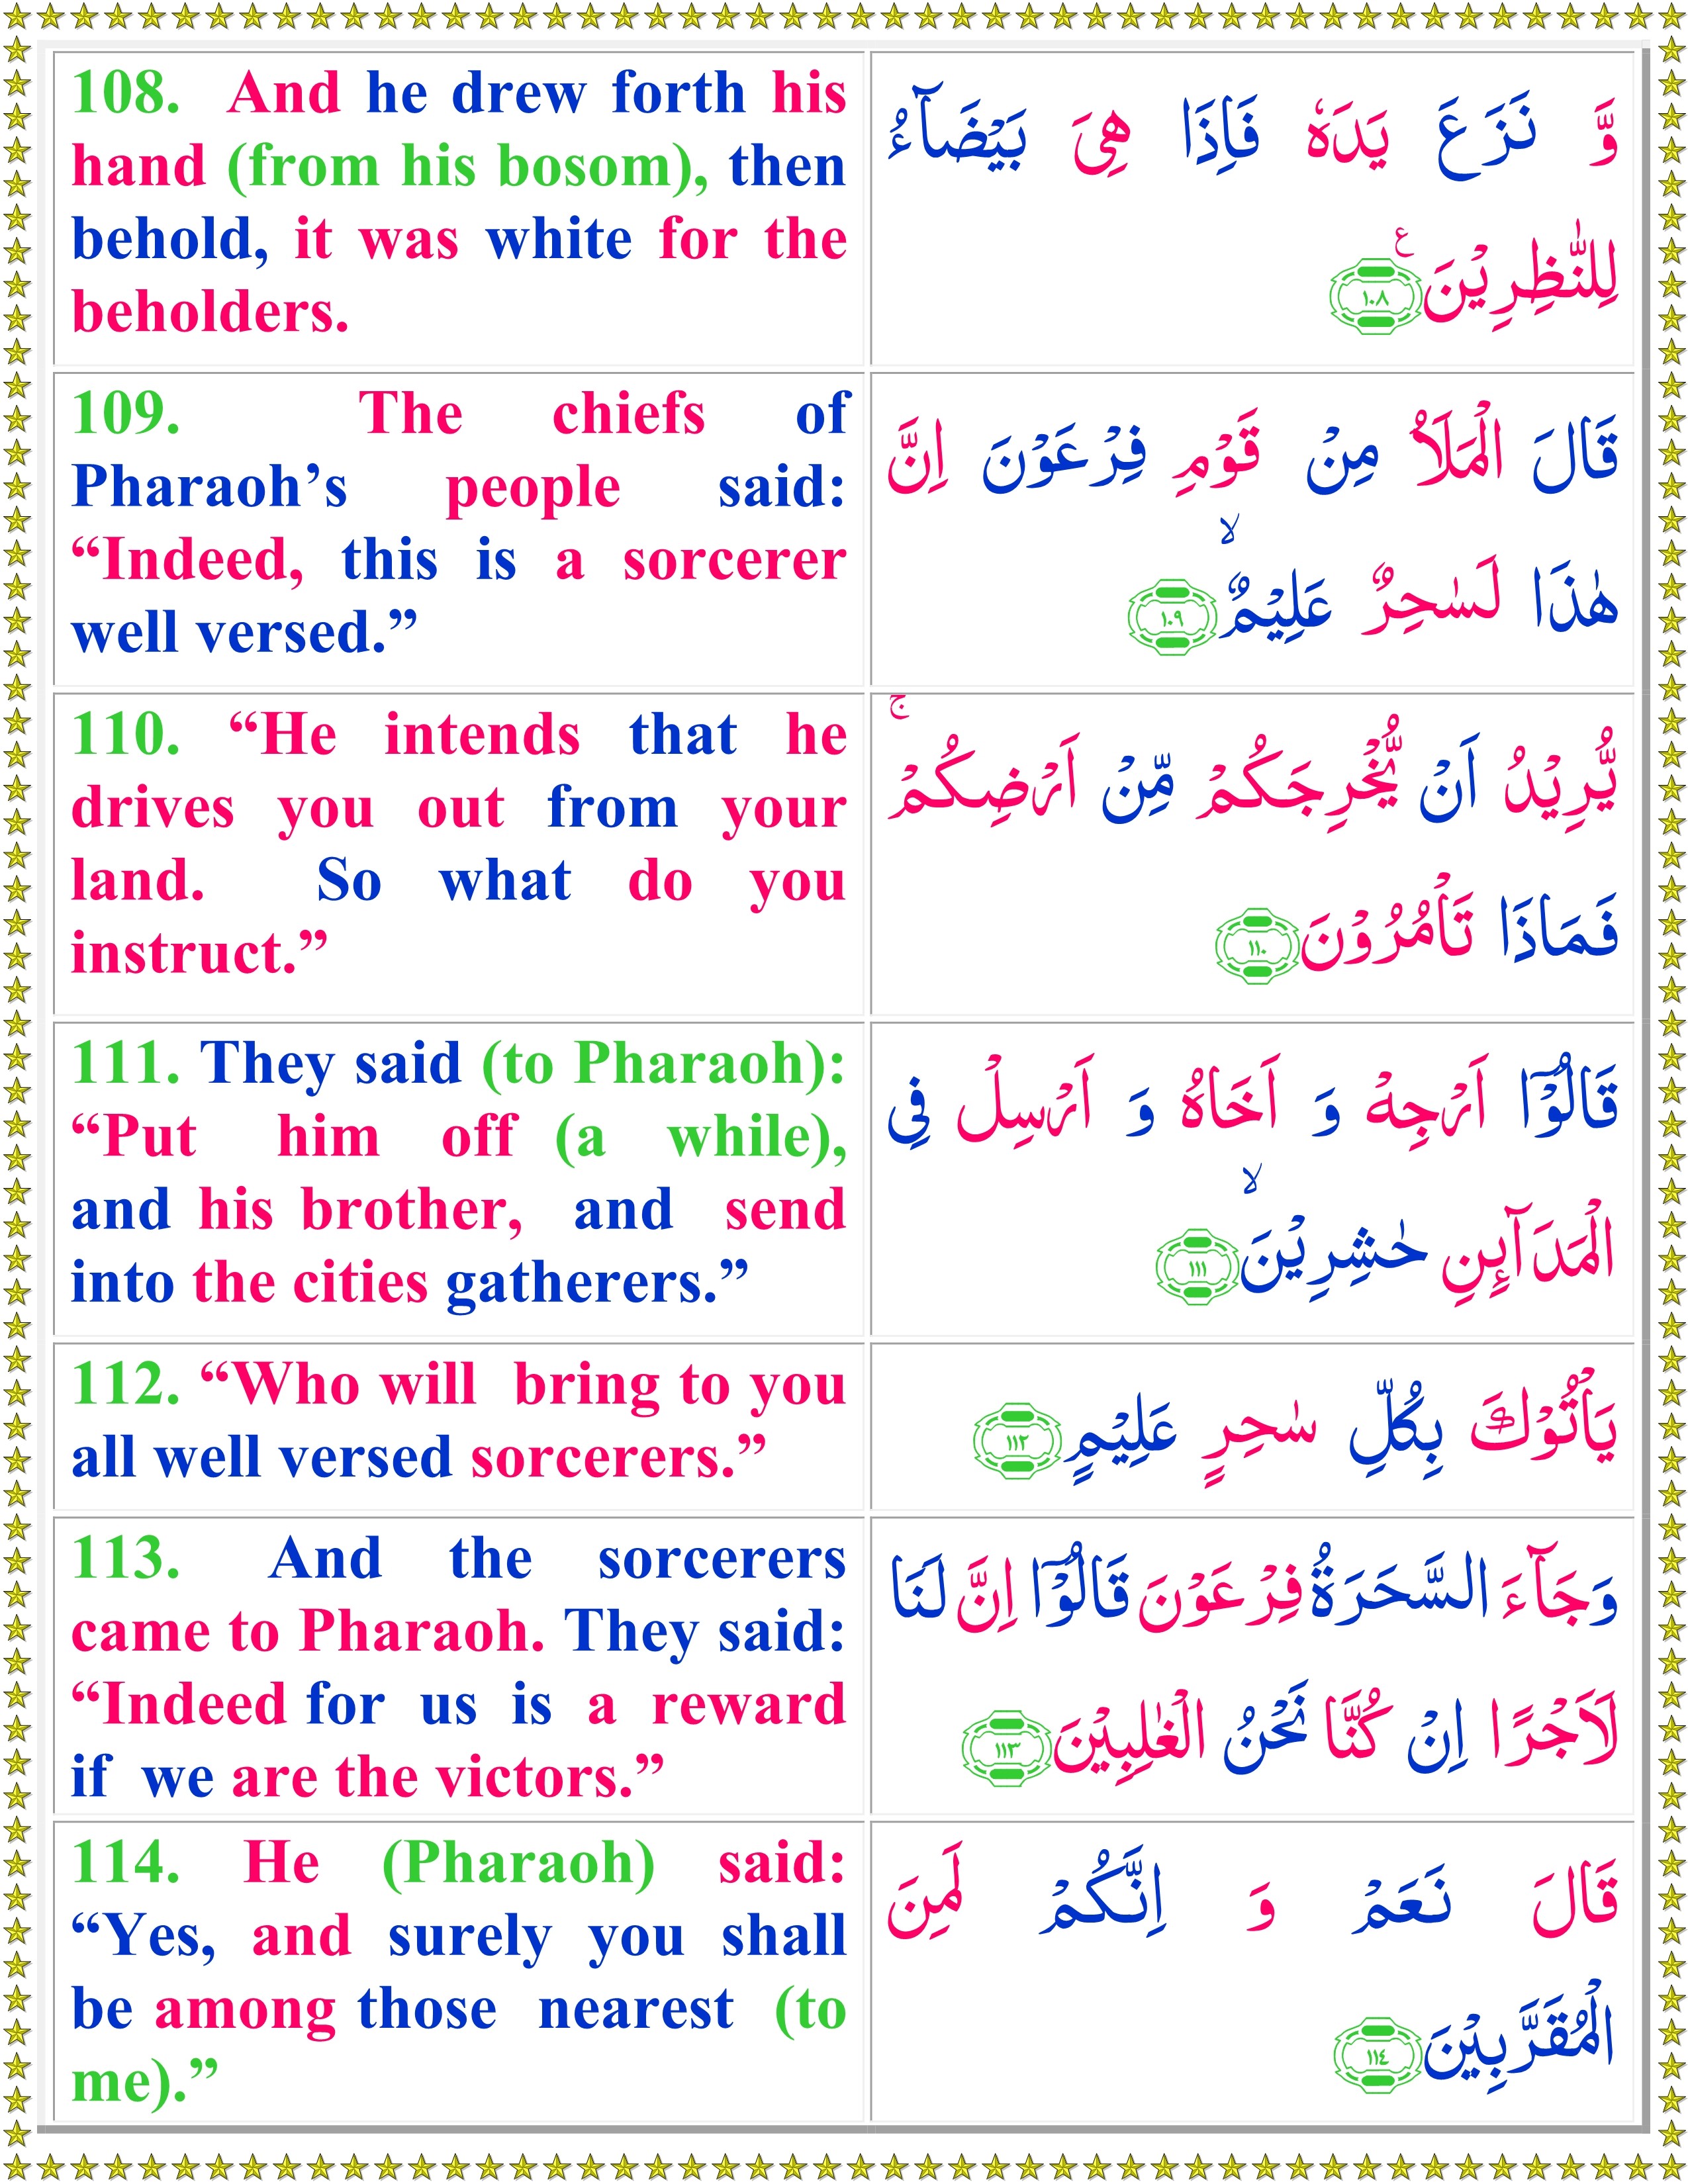 108. And he drew forth his
hand (from his bosom), then
behold, it was white for the
beholders.
وَّ نَزَعَ يَدَهٗ فَاِذَا هِىَ بَيْضَآءُ
لِلنّٰظِرِيْنَ ۧ ١٠٨
109. The chiefs of
Pharaoh’s people said:
“Indeed, this is a sorcerer
well versed.”
قَالَ الْمَلَاُ مِنْ قَوْمِ فِرْعَوْنَ اِنَّ
هٰذَا لَسٰحِرٌ عَلِيْمٌ ۙ ١٠٩
110. “He intends that he
drives you out from your
land. So what do you
instruct.”
يُّرِيْدُ اَنْ يُّخْرِجَكُمْ مِّنْ اَرْضِكُمْ ۚ
فَمَاذَا تَاْمُرُوْنَ ١١٠
111. They said (to Pharaoh):
“Put him off (a while),
and his brother, and send
into the cities gatherers.”
قَالُوْۤا اَرْجِهْ وَ اَخَاهُ وَ اَرْسِلْ فِى
الْمَدَآٮِٕنِ حٰشِرِيْنَ ۙ ١١١
112. “Who will bring to you
all well versed sorcerers.”
يَاْتُوْكَ بِكُلِّ سٰحِرٍ عَلِيْمٍ ١١٢
113. And the sorcerers
came to Pharaoh. They said:
“Indeed for us is a reward
if we are the victors.”
وَجَآءَ السَّحَرَةُ فِرْعَوْنَ قَالُوْۤا اِنَّ لَنَا
لَاَجْرًا اِنْ كُنَّا نَحْنُ الْغٰلِبِيْنَ ١١٣
114. He (Pharaoh) said:
“Yes, and surely you shall
be among those nearest (to
me).”
قَالَ نَعَمْ وَ اِنَّكُمْ لَمِنَ
الْمُقَرَّبِيْنَ ١١٤